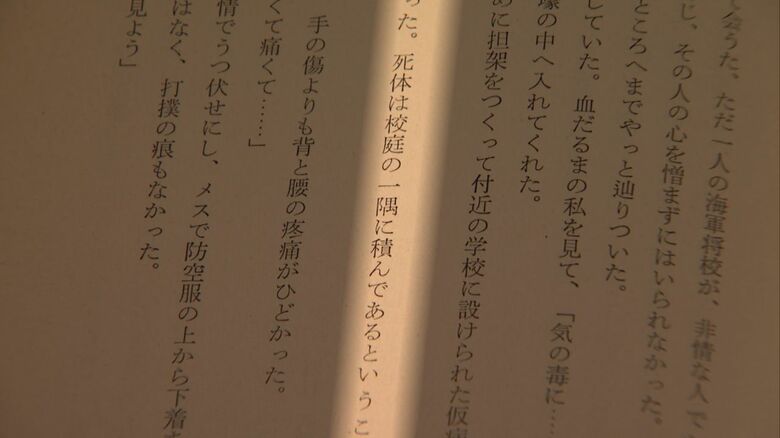 て会った、ただ一人の海軍将校が、非情な人で
じ、その人の心を憎まずにはいられなかった。
ところへまでやっと辿りついた。
していた。血だるまの私を見て、「気の毒に…
壕の中へ入れてくれた。
めに担架をつくって付近の学校に設けられた仮病
った。死体は校庭の一隅に積んであるというこ
手の傷よりも背と腰の疼痛がひどかった。
くて痛くて……」
情でうつ伏せにし、メスで防空服の上から下着ま
はなく、打撲の痕もなかった。
見よう」